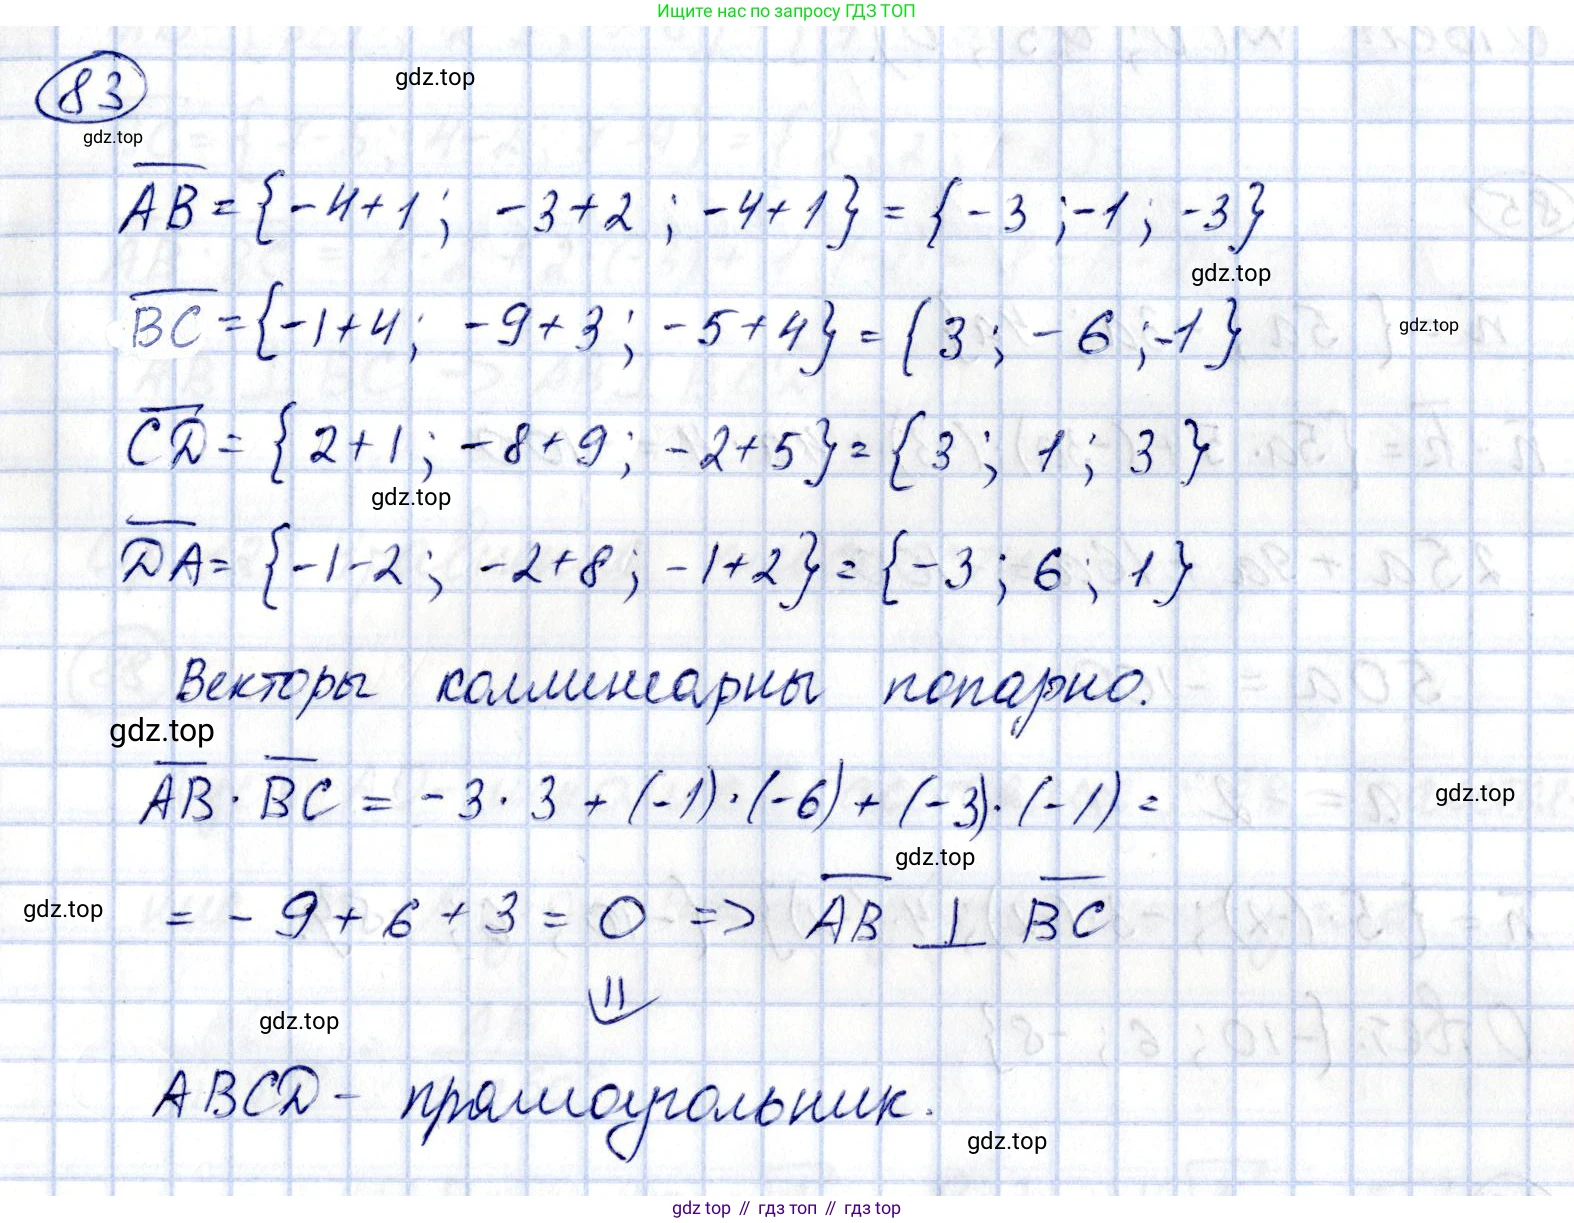 Ищите нас по запросу ГДЗ ТОП
83
gdz.top
gdz.top
AB = {-4+1; -3+2; -4+1} = {-3; -1; -3}
gdz.top
BC = {-1+4; -9+3; -5+4} = {3; -6; -1}
gdz.top
CD = {2+1; -8+9; -2+5} = {3; 1; 3}
gdz.top
DA = {-1-2; -2+8; -1+2} = {-3; 6; 1}
Векторы коллинеарны попарно.
gdz.top
AB · BC = -3·3 + (-1)·(-6) + (-3)·(-1) =
gdz.top
gdz.top
= -9+6+3 = 0 => AB ⊥ BC
gdz.top
⇓
gdz.top
ABCD - прямоугольник.
gdz.top
gdz top // гдз топ // гдз top